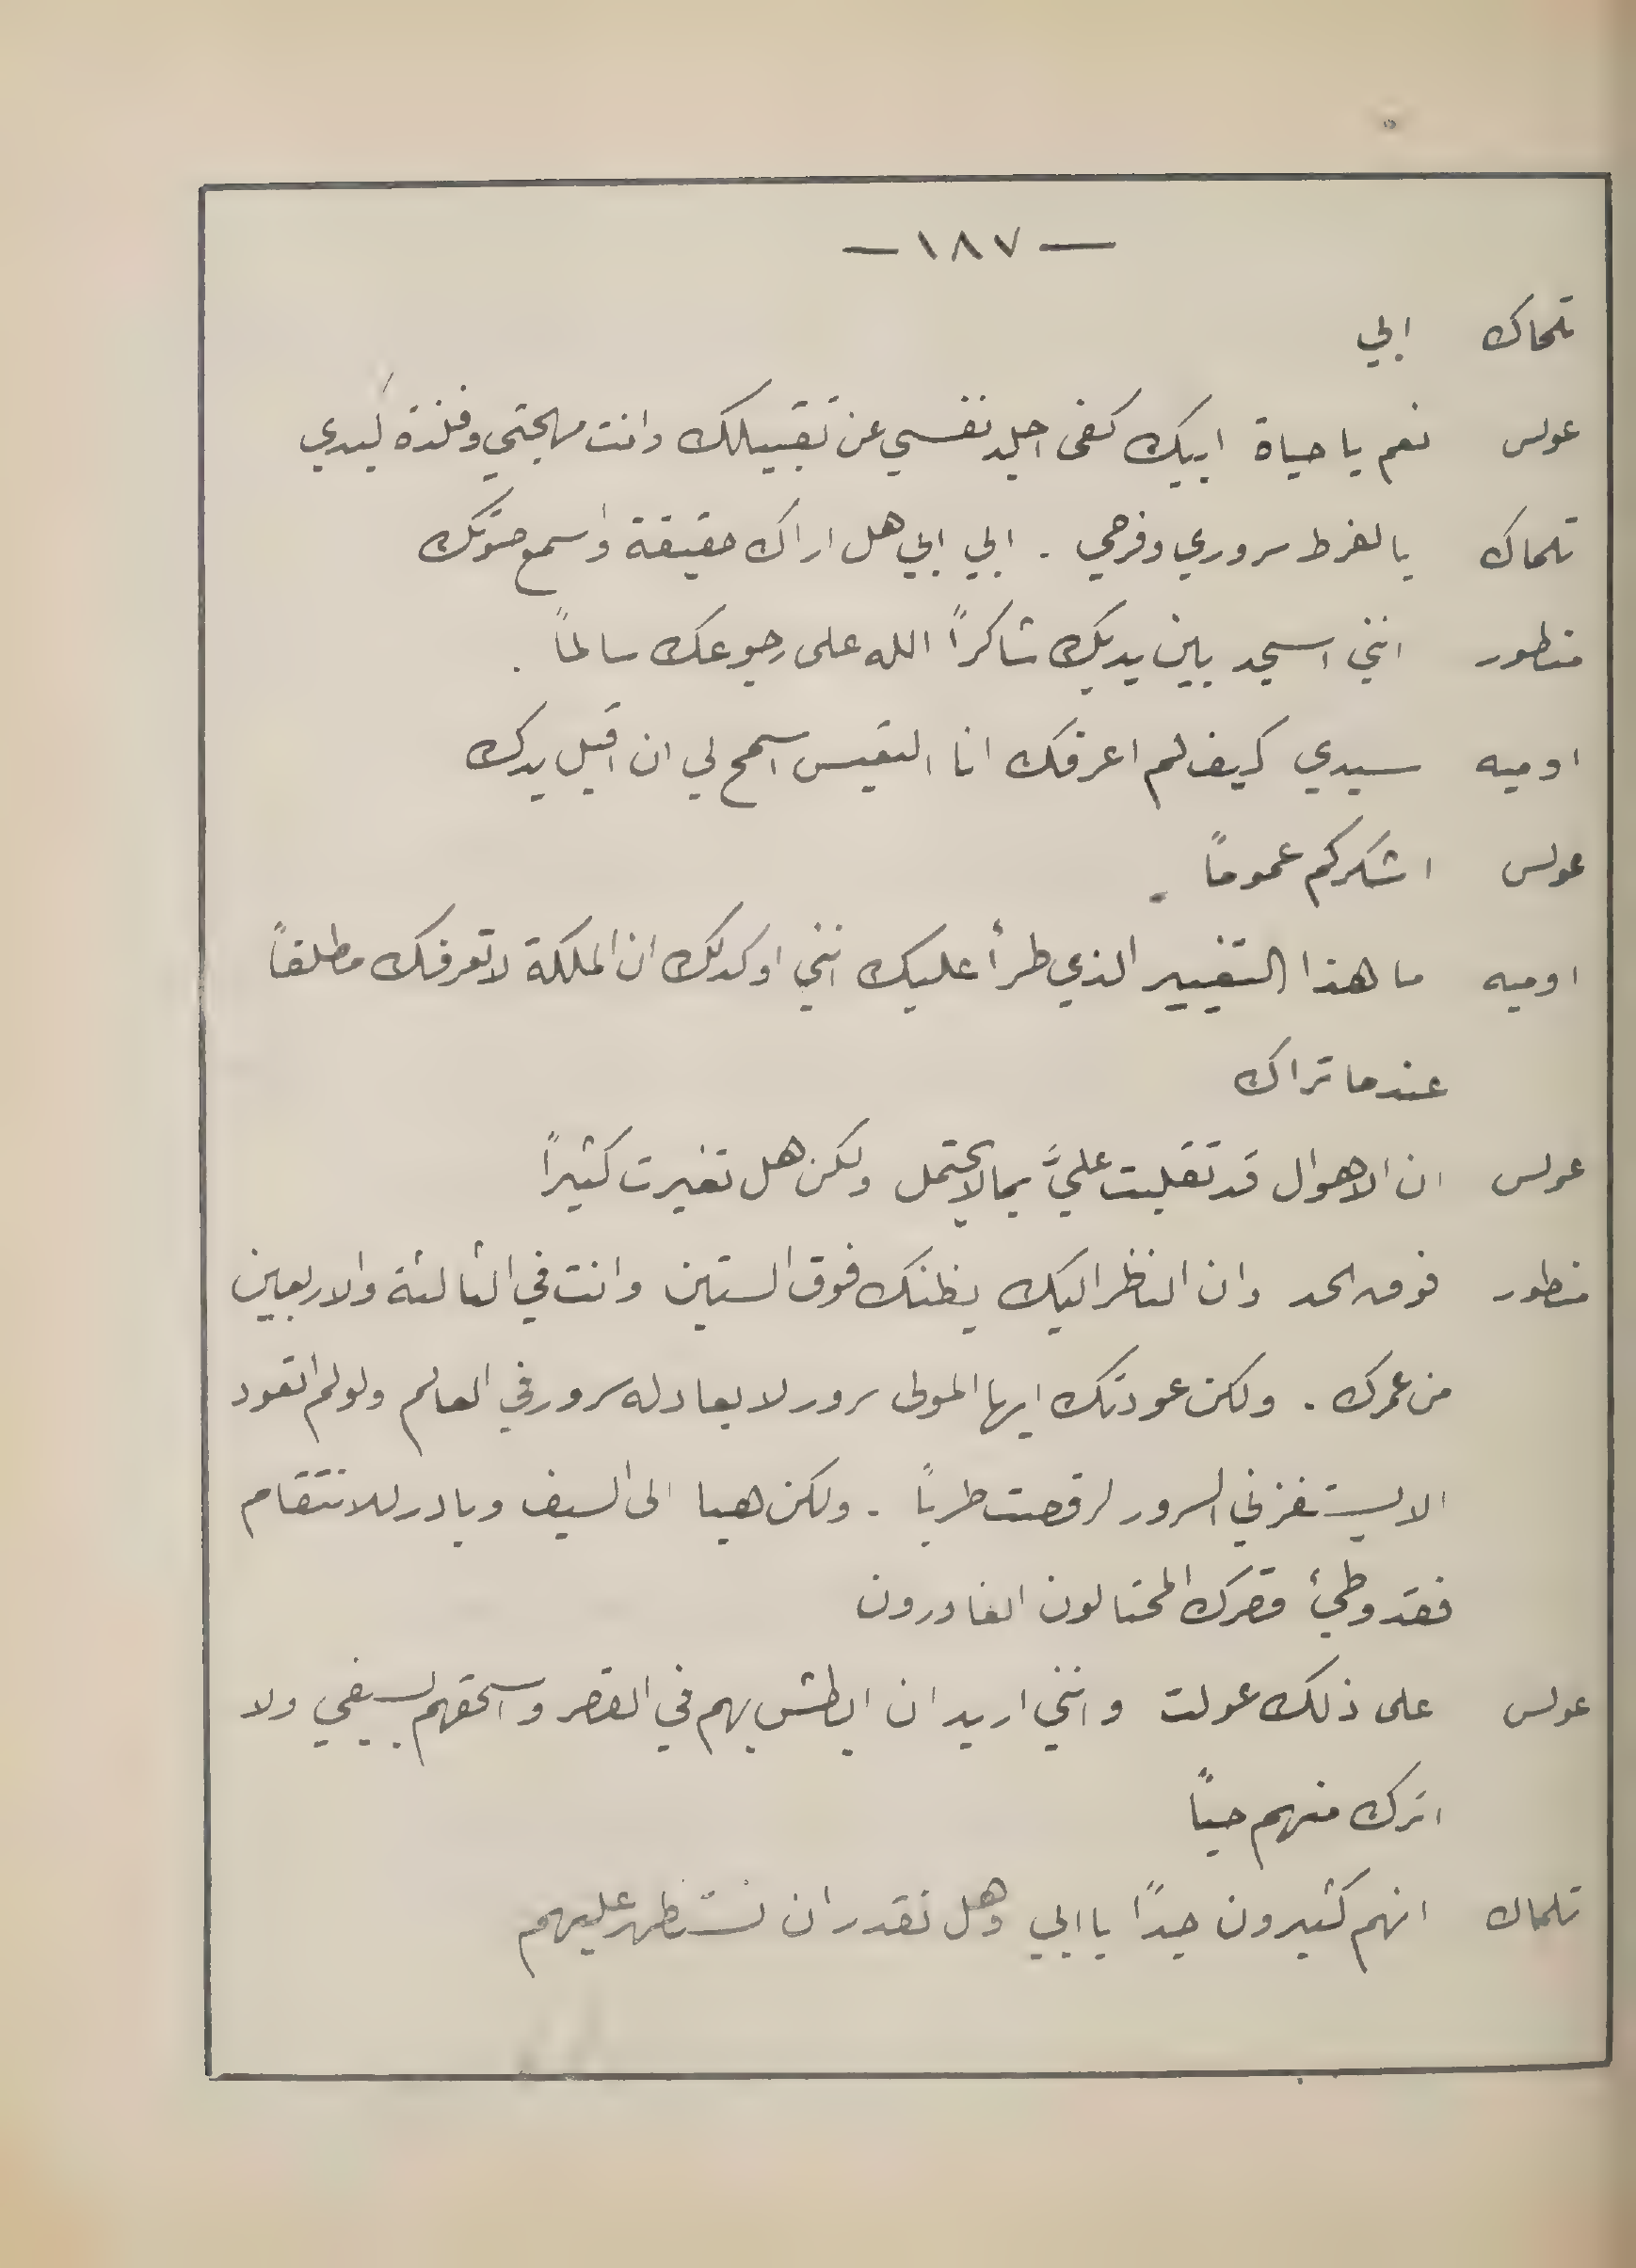 — ١٨٧ —
تلماك ابي
عولس نعم يا حياة ابيك كفى اجلد نفسي عن تقبيلك وانت مهجتي وفلذة كبدي
تلماك يا لفرط سروري وفرحي . ابي ابي هل اراك حقيقة واسمع صوتك
منطور انني اسجد بين يديك شاكراً الله على رجوعك سالماً .
اوميه سيدي كيف لم اعرفك انا التعيس اسمح لي ان اقبل يدك
عولس اشكركم عموماً .
اوميه ما هذا التغيير الذي طرأ عليك انني اوكد لك ان الملكة لا تعرفك مطلقاً
عندما تراك
عولس ان الاهوال قد تقلبت عليَّ بما لا يحتمل ولكن هل تغيرت كثيراً
منطور فوق الحد وان الناظر اليك يظنك فوق الستين وانت في الثالثة والاربعين
من عمرك . ولكن عودتك ايها المولى سرور لا يعادله سرور في العالم ولو لم اتعود
الا يستفزني السرور لرقصت طرباً . ولكن هيا الى السيف وبادر للانتقام
فقد وطئ قصرك المحتالون الغادرون
عولس على ذلك عولت وانني اريد ان ابطش بهم في القصر واسحقهم بسيفي ولا
اترك منهم حياً
تلماك انهم كثيرون جداً يا ابي وهل نقدر ان نستظهر عليهم